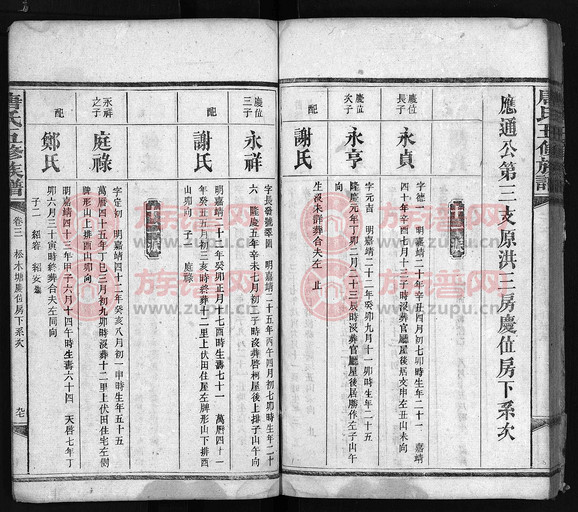 唐氏五修族譜
應通公第三支原洪三房慶位房下系次
慶位長子
永貞
字德一 明嘉靖二十年辛丑四月初七卯時生年二十一 嘉靖
四十年辛酉七月十三子時沒葬官廳屋後居支申左丑山未向
慶位次子
永亨
字元吉 明嘉靖三十二年癸丑九月十一卯時生年二十五
隆慶元年丁卯二月二十三辰時沒葬官廳屋後居左子山午向
配
謝氏
生沒未詳葬合夫左 止
慶位三子
永祥
字長發號翠圃 明嘉靖二十五年丙午四月初七卯時生年二十
六 隆慶五年辛未七月初三子時沒葬啓柯屋後上排子山午向
配
謝氏
年癸丑五月初三亥時終葬十二里上伏田住屋左牌形山下排酉
山卯向 子一 庭祿
永祥之子
庭祿
字定初 明嘉靖四十二年癸亥八月初一申時生年五十五
萬曆四十五年丁巳三月初九卯時沒葬十二里上伏田住宅左側
牌形山上排酉山卯向
配
鄭氏
明嘉靖四十三年甲子六月十四午時生壽六十四 天啓七年丁
卯六月三十寅時終葬合夫左同向
子二
唐氏五修族譜
卷三
松木塘慶位房下系次
www.zupu.cn
族谱网